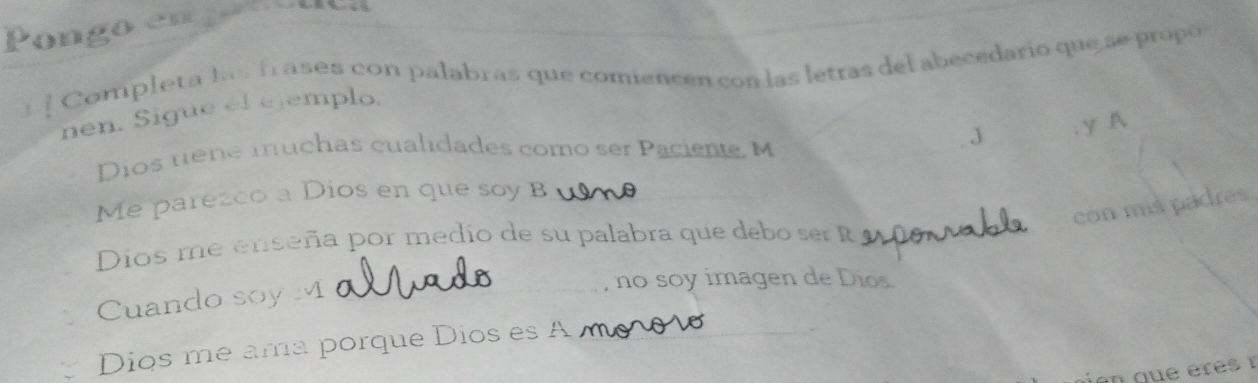 Pongo en
Completa las frases con palabras que comiencen con las letras del abecedario que se propo
nen. Sigue el ejemplo.
Dios tiene muchas cualidades como ser Paciente, M J , y A
Me parezco a Dios en que soy Bueno
Dios me enseña por medio de su palabra que debo ser Responsable con mis padres
Cuando soy Malvado , no soy imagen de Dios.
Dios me ama porque Dios es Amoroso
que eres